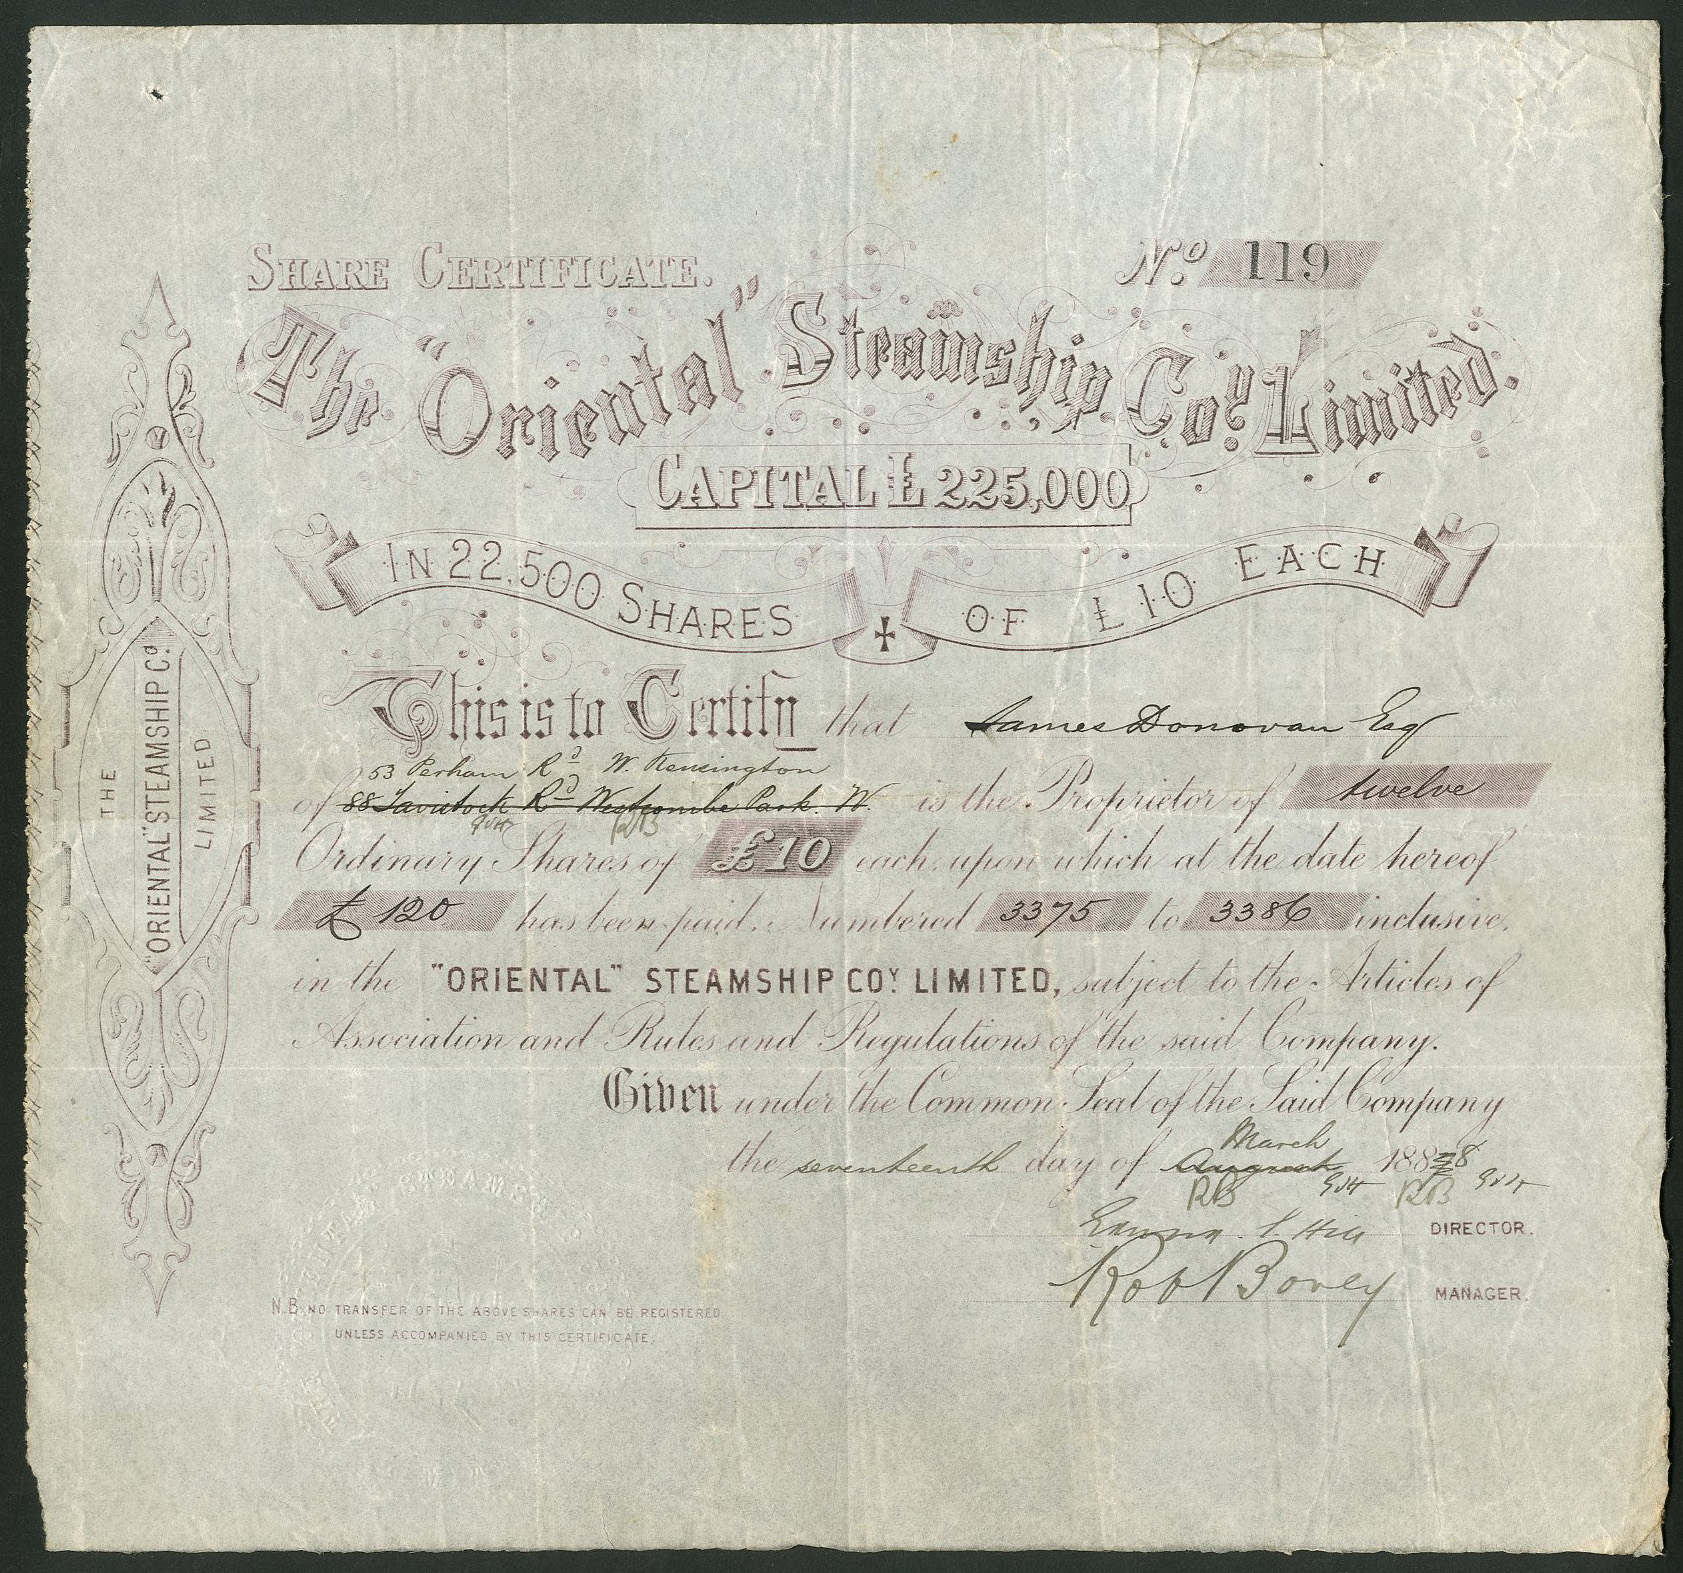 SHARE CERTIFICATE. No. 119
The "Oriental" Steamship Coy. Limited.
CAPITAL £225,000
IN 22,500 SHARES OF £10 EACH
This is to Certify that James Donovan Esq
53 Perham Rd W. Kensington
of 88 Tavistock Rd Westcombe Park. W. is the Proprietor of twelve
RB
Ordinary Shares of £10 each, upon which at the date hereof
£120 has been paid. Numbered 3375 to 3386 inclusive,
in the "ORIENTAL" STEAMSHIP COY. LIMITED, subject to the Articles of
Association and Rules and Regulations of the said Company.
Given under the Common Seal of the Said Company
March
the seventeenth day of August 188 8
RB RB
Hill DIRECTOR.
Robt Bovey MANAGER.
N.B. NO TRANSFER OF THE ABOVE SHARES CAN BE REGISTERED
UNLESS ACCOMPANIED BY THIS CERTIFICATE.
THE
"ORIENTAL" STEAMSHIP CO.
LIMITED